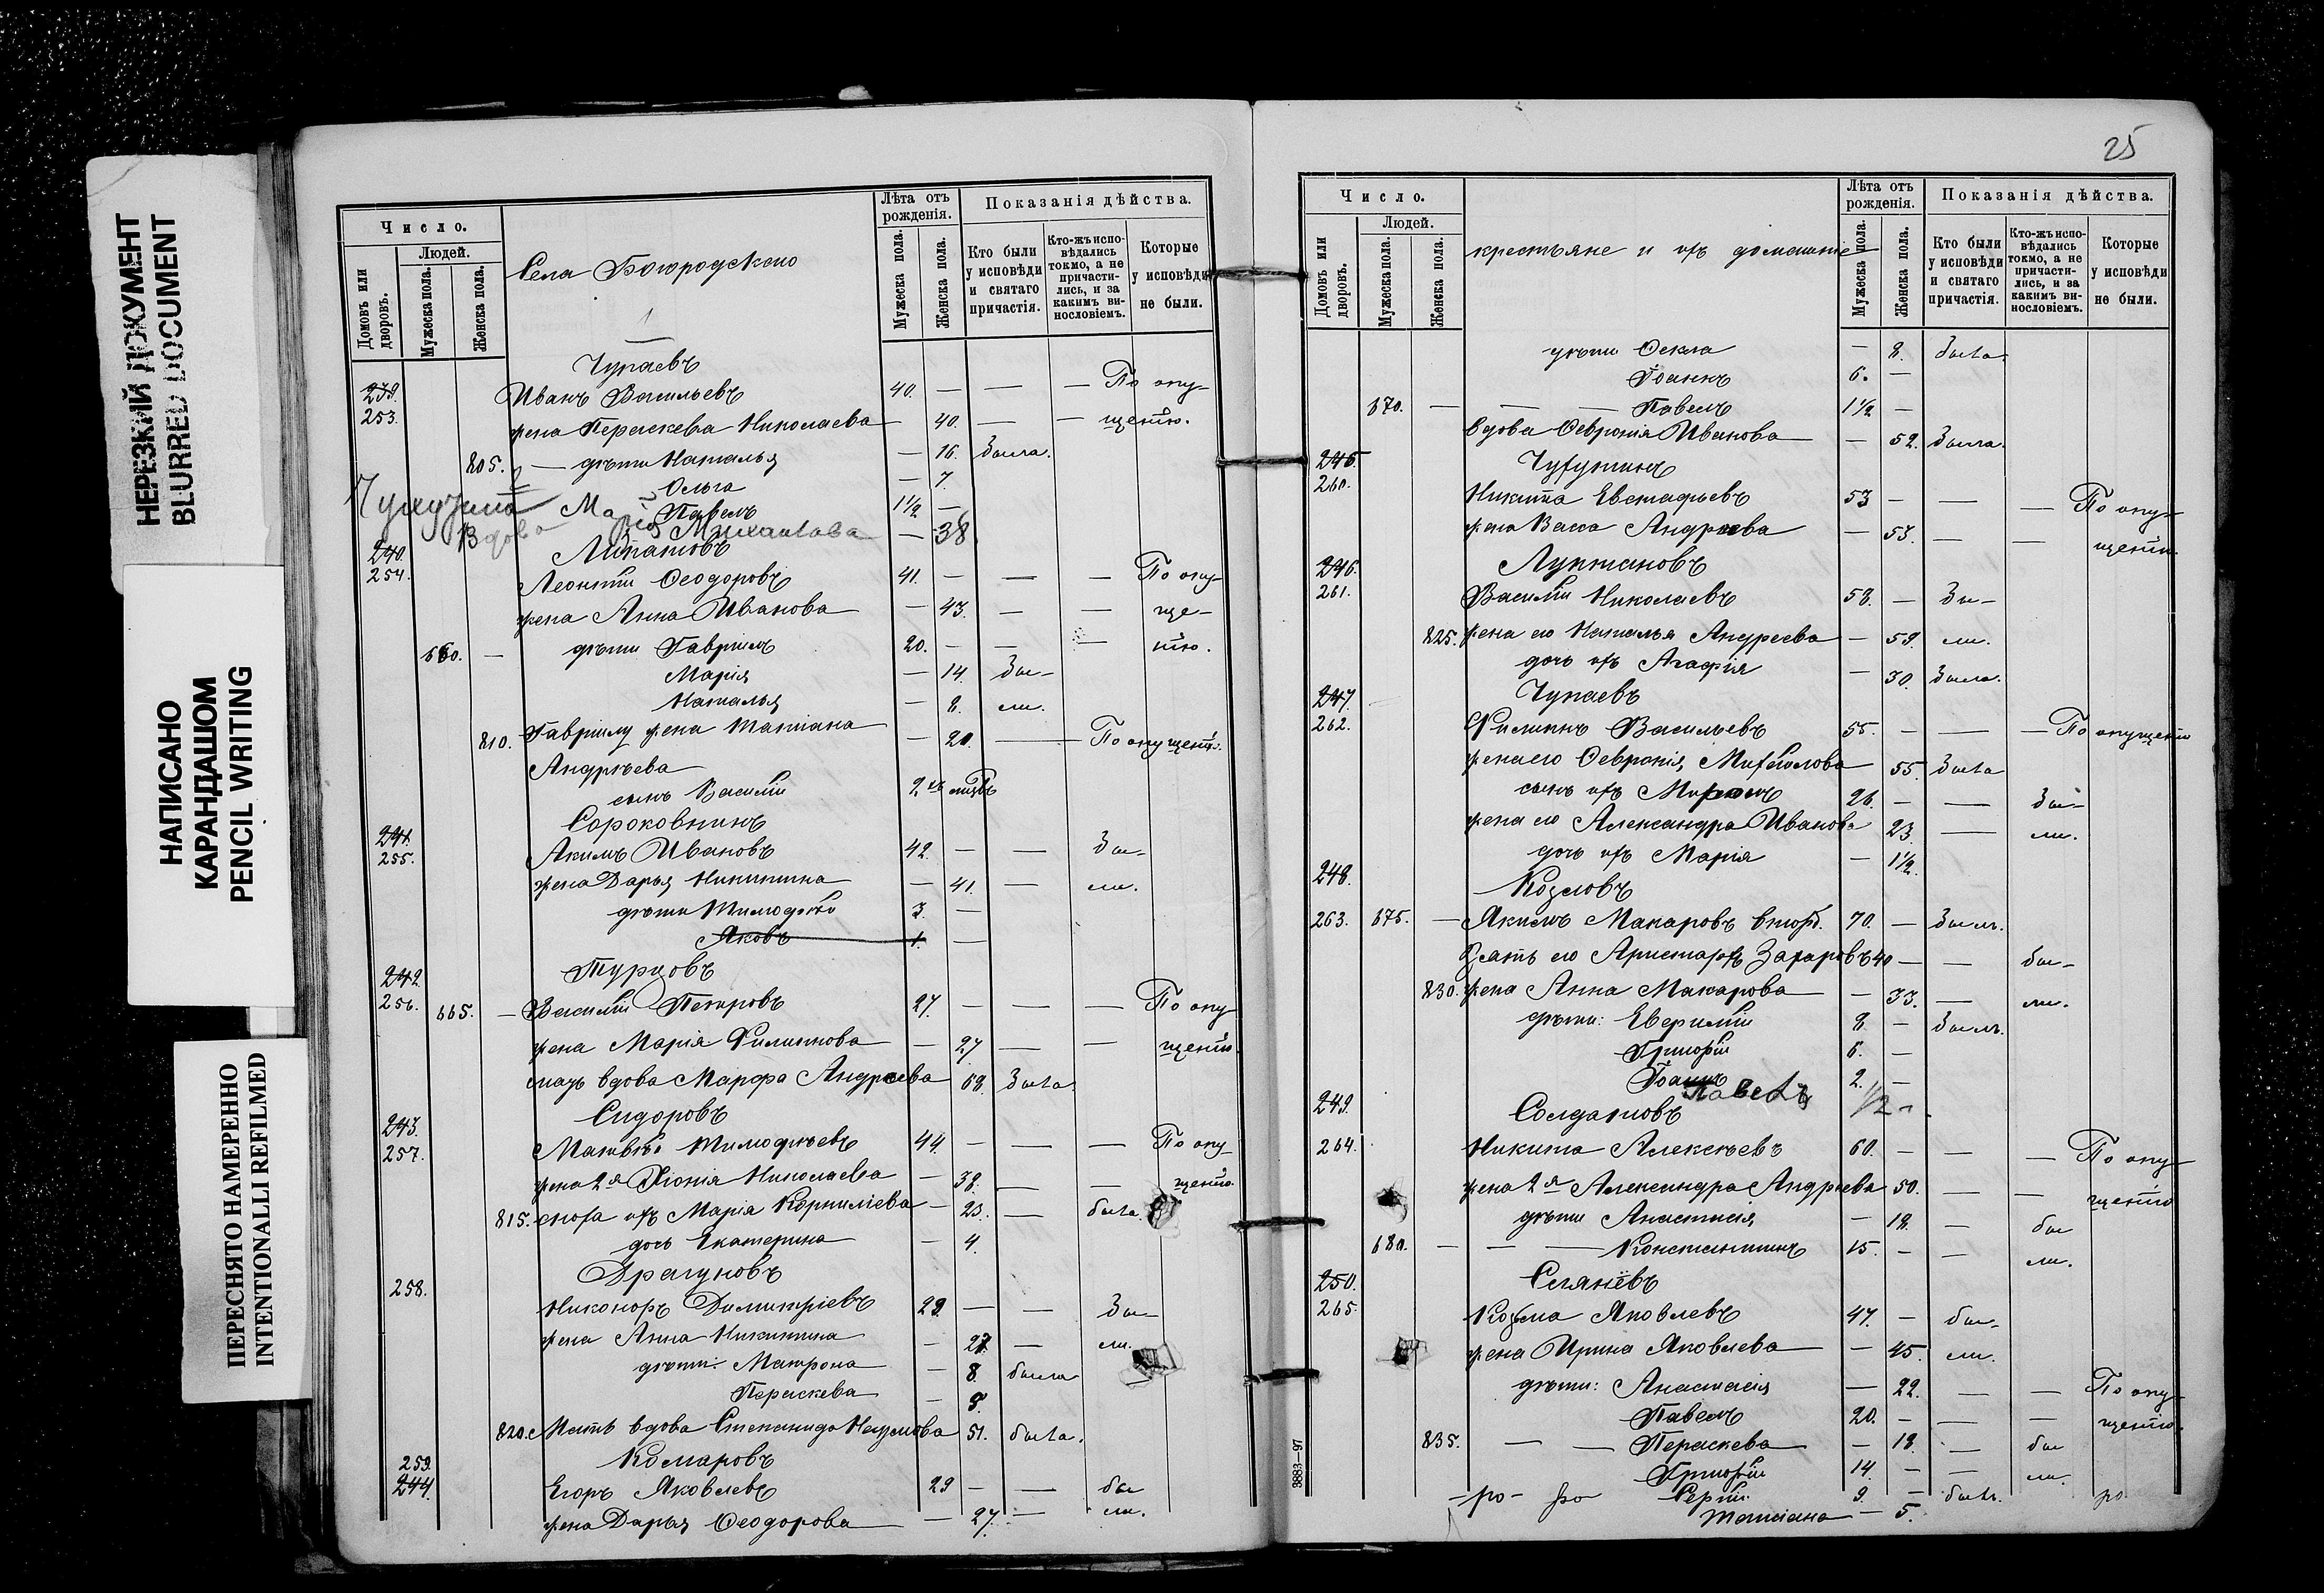 НЕРЕЗКИЙ ДОКУМЕНТ
BLURRED DOCUMENT
НАПИСАНО
КАРАНДАШОМ
PENCIL WRITING
ПЕРЕСНЯТО НАМЕРЕННО
INTENTIONALLI REFILMED
Число.
Людей.
Домовъ или дворовъ.
Мужеска пола.
Женска пола.
Села Богородскаго
Лѣта отъ рожденія.
Мужеска пола.
Женска пола.
Показанія дѣйства.
Кто были у исповѣди и святаго причастія.
Кто-жъ исповѣдались токмо, а не причастились, и за какимъ винословіемъ.
Которые у исповѣди не были.
Чупаевъ
239. Иванъ Васильевъ 40. — — — По опу-
253. жена Пераскева Николаева — 40. — — щенію.
805. — дѣти Наталья — 16. была.
Ольга — 7.
Павелъ 1½ —
Вдова Марія Михаилова — 38
240. Липатовъ
254. Леонтій Ѳеодоровъ 41. — — — По опу-
жена Анна Иванова — 43. — — ще-
660. — дѣти Гавріилъ 20. — — — нію.
Марія — 14. бы-
Наталья — 8. ли.
810. Гавріилу жена Татіана — 20. — По опущенію.
Андрѣева
сынъ Василій 2
Сороковнинъ
241. Акимъ Ивановъ 42. — — бы-
255. жена Дарья Никитина — 41. — ли.
дѣти Тимофѣй 3. —
Яковъ 1. —
242. Турцовъ
256. 665. — Василій Петровъ 27. — — — По опу-
жена Марія Филиппова — 27 — — щенію.
мать вдова Марфа Андреева 68. была
243. Сидоровъ
257. Матвѣй Тимофѣевъ 44. — — — По опу-
жена 2я Хіонія Николаева — 38. — — щенію.
815. сноха ихъ Марія Корниліева — 23. — была.
дочь Екатерина — 4.
Драгуновъ
258. Никоноръ Димитріевъ 29. — — бы-
жена Анна Никитина — 27. — ли.
дѣти: Матрона — 8. была
Пераскева — 8.
820. Мать вдова Степанида Наумова 51. была.
259. Комаровъ
244. Егоръ Яковлевъ 29 — — бы
жена Дарья Ѳеодорова — 27. — ли.
25
Число.
Людей.
Домовъ или дворовъ.
Мужеска пола.
Женска пола.
крестьяне и ихъ домашніе
Лѣта отъ рожденія.
Мужеска пола.
Женска пола.
Показанія дѣйства.
Кто были у исповѣди и святаго причастія.
Кто-жъ исповѣдались токмо, а не причастились, и за какимъ винословіемъ.
Которые у исповѣди не были.
дѣти Ѳекла — 8. была
Іоаннъ 6. —
670. — — — Павелъ 1½ —
вдова Ѳевронія Иванова — 52. была.
245.
260. Никита Евстафьевъ 53 — — — По опу-
жена Васса Андреева — 53. — — щенію.
246. Луптановъ
261. Василій Николаевъ 58. — бы-
825. жена его Наталья Андреева — 59. ли.
дочь ихъ Агафія — 30. была.
247. Чупаевъ
262. Филиппъ Васильевъ 55. — — — По опущенію
жена его Ѳевронія Михайлова 55. была
сынъ ихъ Михаилъ 26. — — бы-
жена его Александра Иванова 23. — ли.
дочь ихъ Марія — 1½.
248. Козловъ
263. 675. — Якимъ Макаровъ 70. — былъ.
Зять его Аристархъ Захаровъ 40 — — бы-
830. жена Анна Макарова — 33. — ли.
дѣти: 8. — былъ.
Григорій 6. —
Іоаннъ 2. —
Павелъ 1/2 -
249. Солдатовъ
264. Никита Алексѣевъ 60. — — — По опу-
жена 2я Александра Андреева 50. — — щенію
дѣти Анастасія — 18. — бы
680. — — — Константинъ 15. — — ли.
250.
265. Козьма Яковлевъ 47. — бы-
жена Ирина Яковлева — 45. ли.
дѣти: Анастасія — 22. — — По опу-
Павелъ 20. — — — щенію.
835. — — Пераскева — 18. — бы
Григорій 14. — — ли.
Сергій 9. — былъ.
Татіана — 5.
3883—97